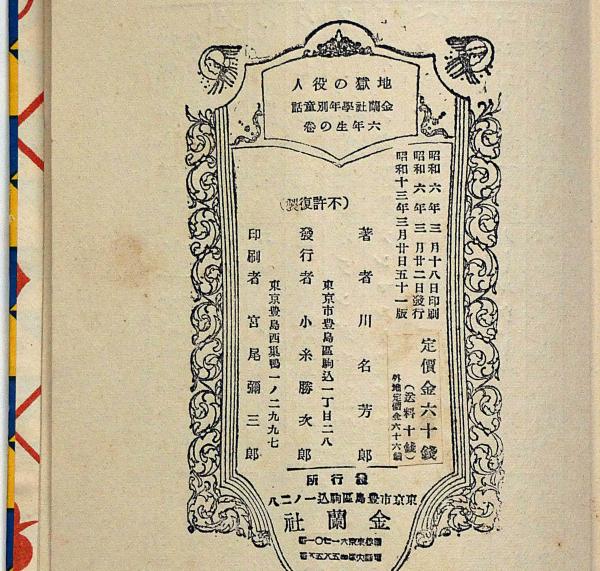 地獄の役人
金蘭社學年別童話
六年生の巻
昭和六年三月十八日印刷
昭和六年三月廿二日發行
昭和十三年三月廿日五十一版
定價金六十錢
(送料十錢)
外地定價金六十六錢
(不許復製)
著者 川名芳郎
東京市豊島區駒込一丁目二八
發行者 小糸勝次郎
東京豊島西巣鴨一ノ二九九七
印刷者 宮尾彌三郎
發行所
東京市豊島區駒込一ノ二八
金蘭社